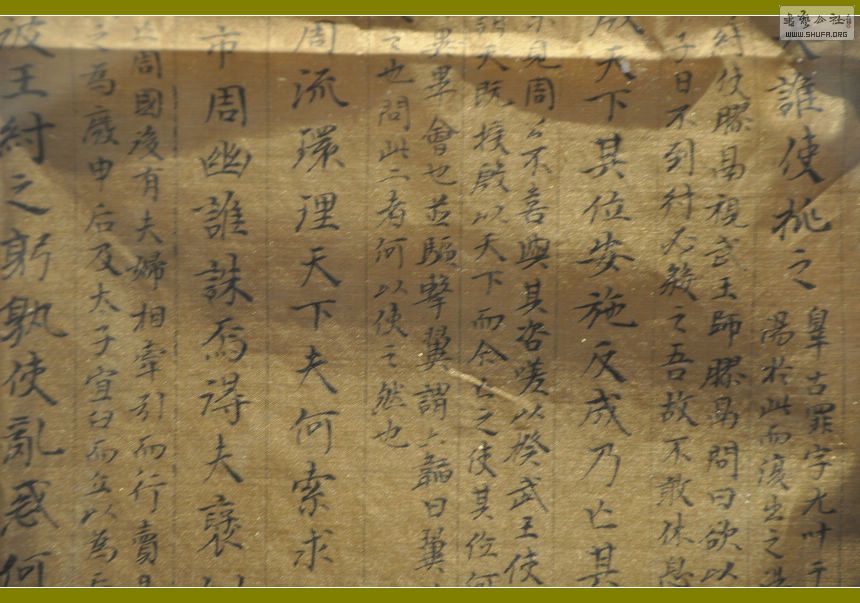 誰使挑之
辠古罪字尤叶于
湯於此而復出之
紂使膠鬲視武王師膠鬲問曰欲以
子日不到紂必殺之吾故不敢休息
天下其位安施反成乃亡其
不見周公不喜與其咨嗟以揆武王使
謂天既授殷以天下而令亡之使其位何
異畢會也並驅擊翼謂六韜曰翼
之也問此二者何以使之然也
周流環理天下夫何索求
市周幽誰誅焉得夫褒
周國後有夫婦相牽引而行賣
為廢申后及太子宜臼而立以為后
彼王紂之躬孰使亂惑何
書藝公社
WWW.SHUFA.ORG